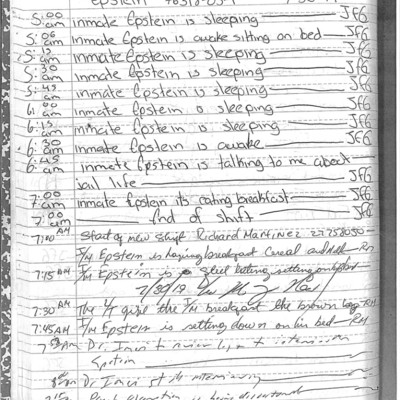 epstein
5:00 am inmate Epstein is sleeping JFG
5:06 am inmate Epstein is awake sitting on bed JFG
5:15 am inmate Epstein is sleeping JFG
5:30 am inmate Epstein is sleeping JFG
5:45 am inmate Epstein is sleeping JFG
6:00 am inmate Epstein is sleeping JFG
6:15 am inmate Epstein is sleeping JFG
6:30 am inmate Epstein is awake JFG
6:45 am inmate Epstein is talking to me about
jail life JFG
7:00 am inmate Epstein its eating breakfast JFG
7:00 am End of shift JFG
7:00 AM Start of new shift Richard Martinez
I/M Epstein is having breakfast cereal and milk RM
7:15 AM I/M Epstein is still eating setting on
7/30/19
7:30 AM The I/M give the I/M breakfast the brown bag RM
7:45 AM I/M Epstein is setting down on his bed RM
Dr.
Epstein
Dr. interviewing
is being